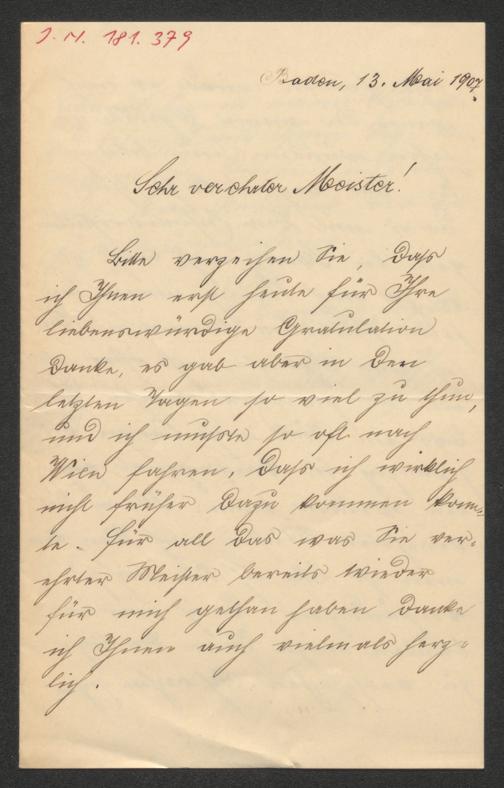 J. N. 181.379
Baden, 13. Mai 1907.
Sehr verehrter Meister!
Bitte verzeihen Sie, daß
ich Ihnen erst heute für Ihre
liebenswürdige Gratulation
danke, es gab aber in den
letzten Tagen so viel zu thun,
und ich mußte so oft nach
Wien fahren, daß ich wirklich
nicht früher dazu kommen konn-
te. Für all das was Sie ver-
ehrter Meister bereits wieder
für mich gethan haben danke
ich Ihnen auch vielmals herz-
lich.